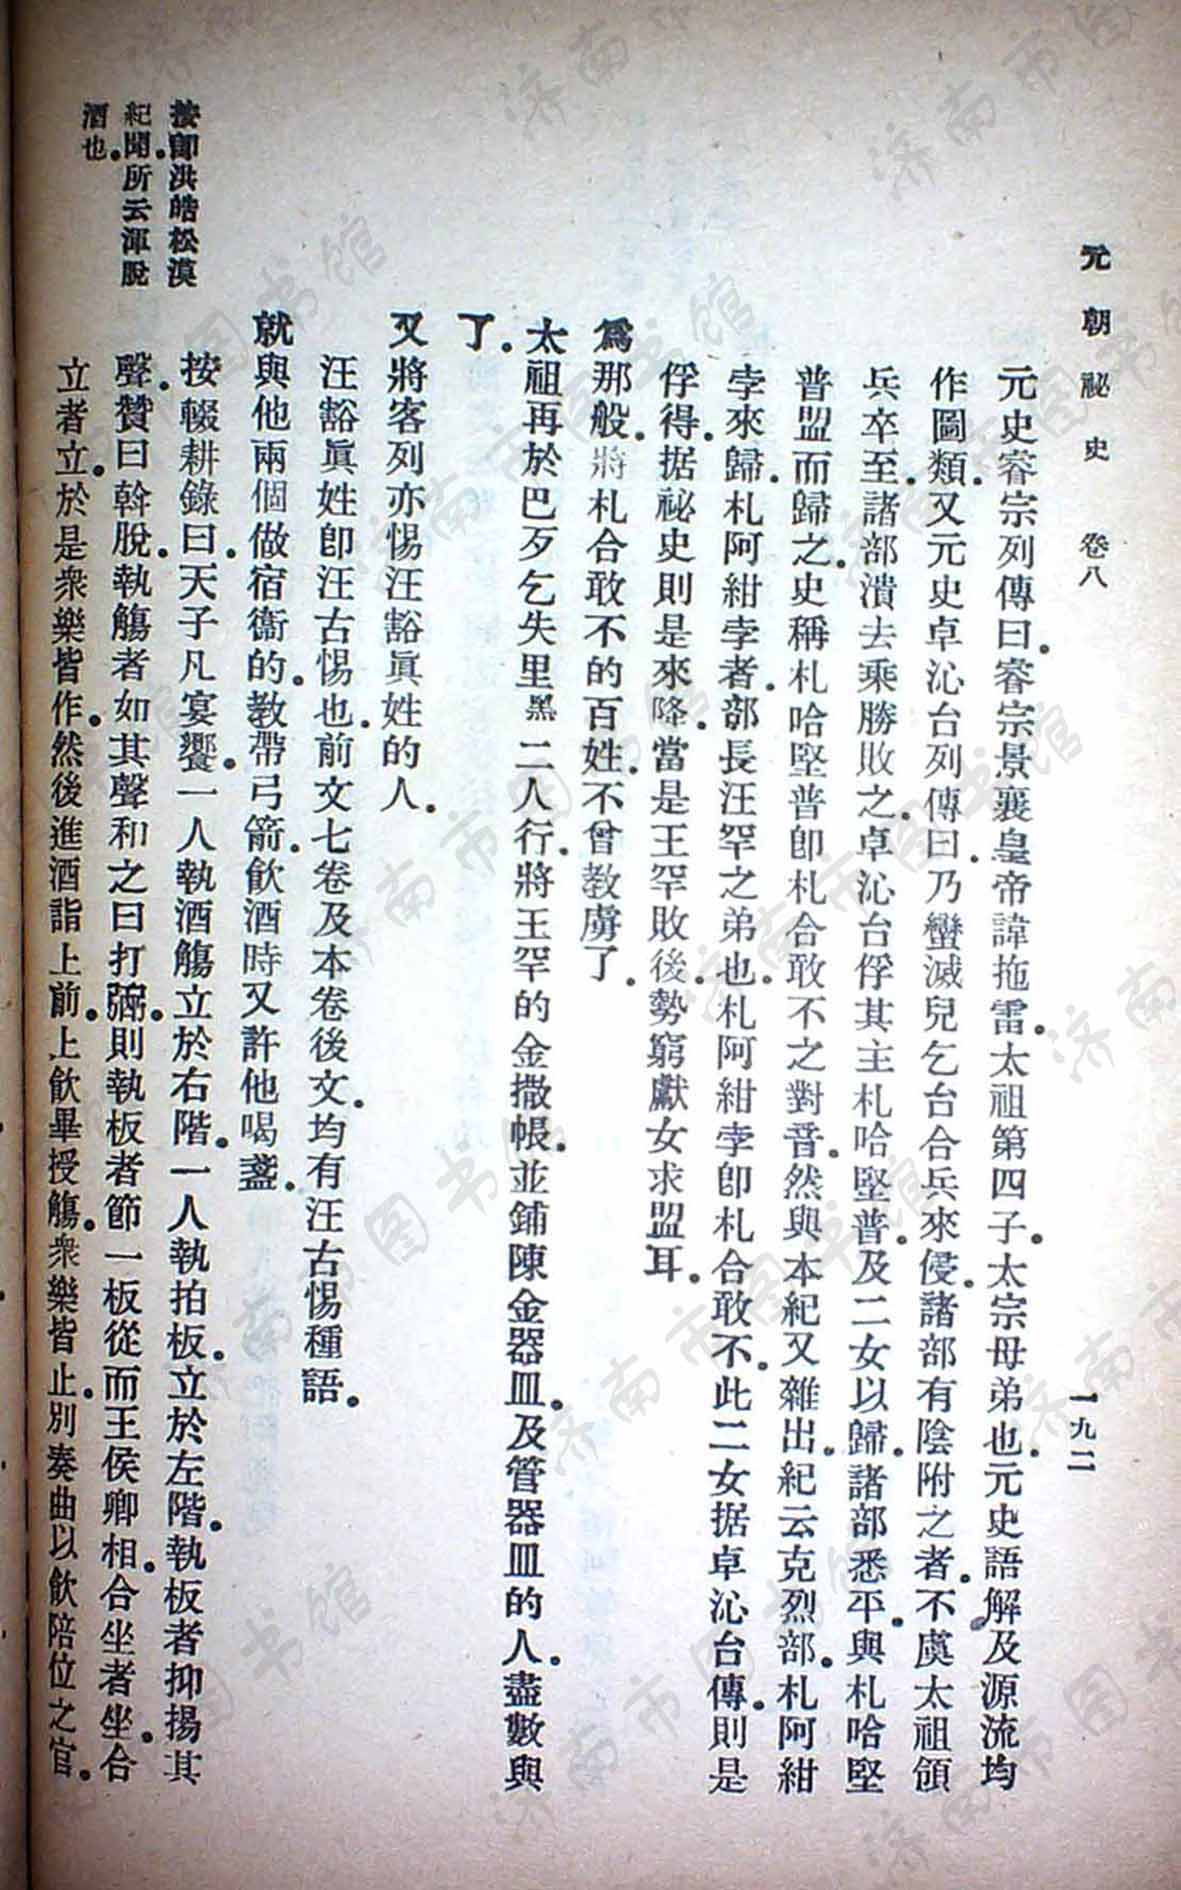 元朝祕史 卷八 一九二
元史睿宗列傳曰。睿宗景襄皇帝諱拖雷。太祖第四子。太宗母弟也。元史語解及源流均
作圖類。又元史卓沁台列傳曰。乃蠻滅兒乞台合兵來侵。諸部有陰附之者。不虞太祖領
兵卒至。諸部潰去乘勝敗之。卓沁台俘其主札哈堅普。及二女以歸。諸部悉平。與札哈堅
普盟而歸之。史稱札哈堅普即札合敢不之對音。然與本紀又雜出。紀云克烈部。札阿紺
孛來歸。札阿紺孛者。部長汪罕之弟也。札阿紺孛即札合敢不。此二女据卓沁台傳。則是
俘得。据祕史則是來降。當是王罕敗後。勢窮獻女求盟耳。
爲那般。將札合敢不的百姓。不曾教虜了。
太祖再於巴歹乞失里黑二人行。將王罕的金撒帳。並鋪陳金器皿。及管器皿的人。盡數與
了。
又將客列亦惕汪豁眞姓的人。
汪豁眞姓即汪古惕也。前文七卷及本卷後文。均有汪古惕種語。
就與他兩個做宿衞的。教帶弓箭。飮酒時又許他喝盞。
按輟耕錄曰。天子凡宴饗。一人執酒觴立於右階。一人執拍板。立於左階。執板者抑揚其
聲。贊曰斡脫。執觴者如其聲和之曰打弼。則執板者節一板從而王侯卿相。合坐者坐。合
立者立。於是衆樂皆作。然後進酒詣上前。上飮畢授觴。衆樂皆止。別奏曲以飮陪位之官。
按卽洪皓松漠
紀聞。所云渾脫
酒也。